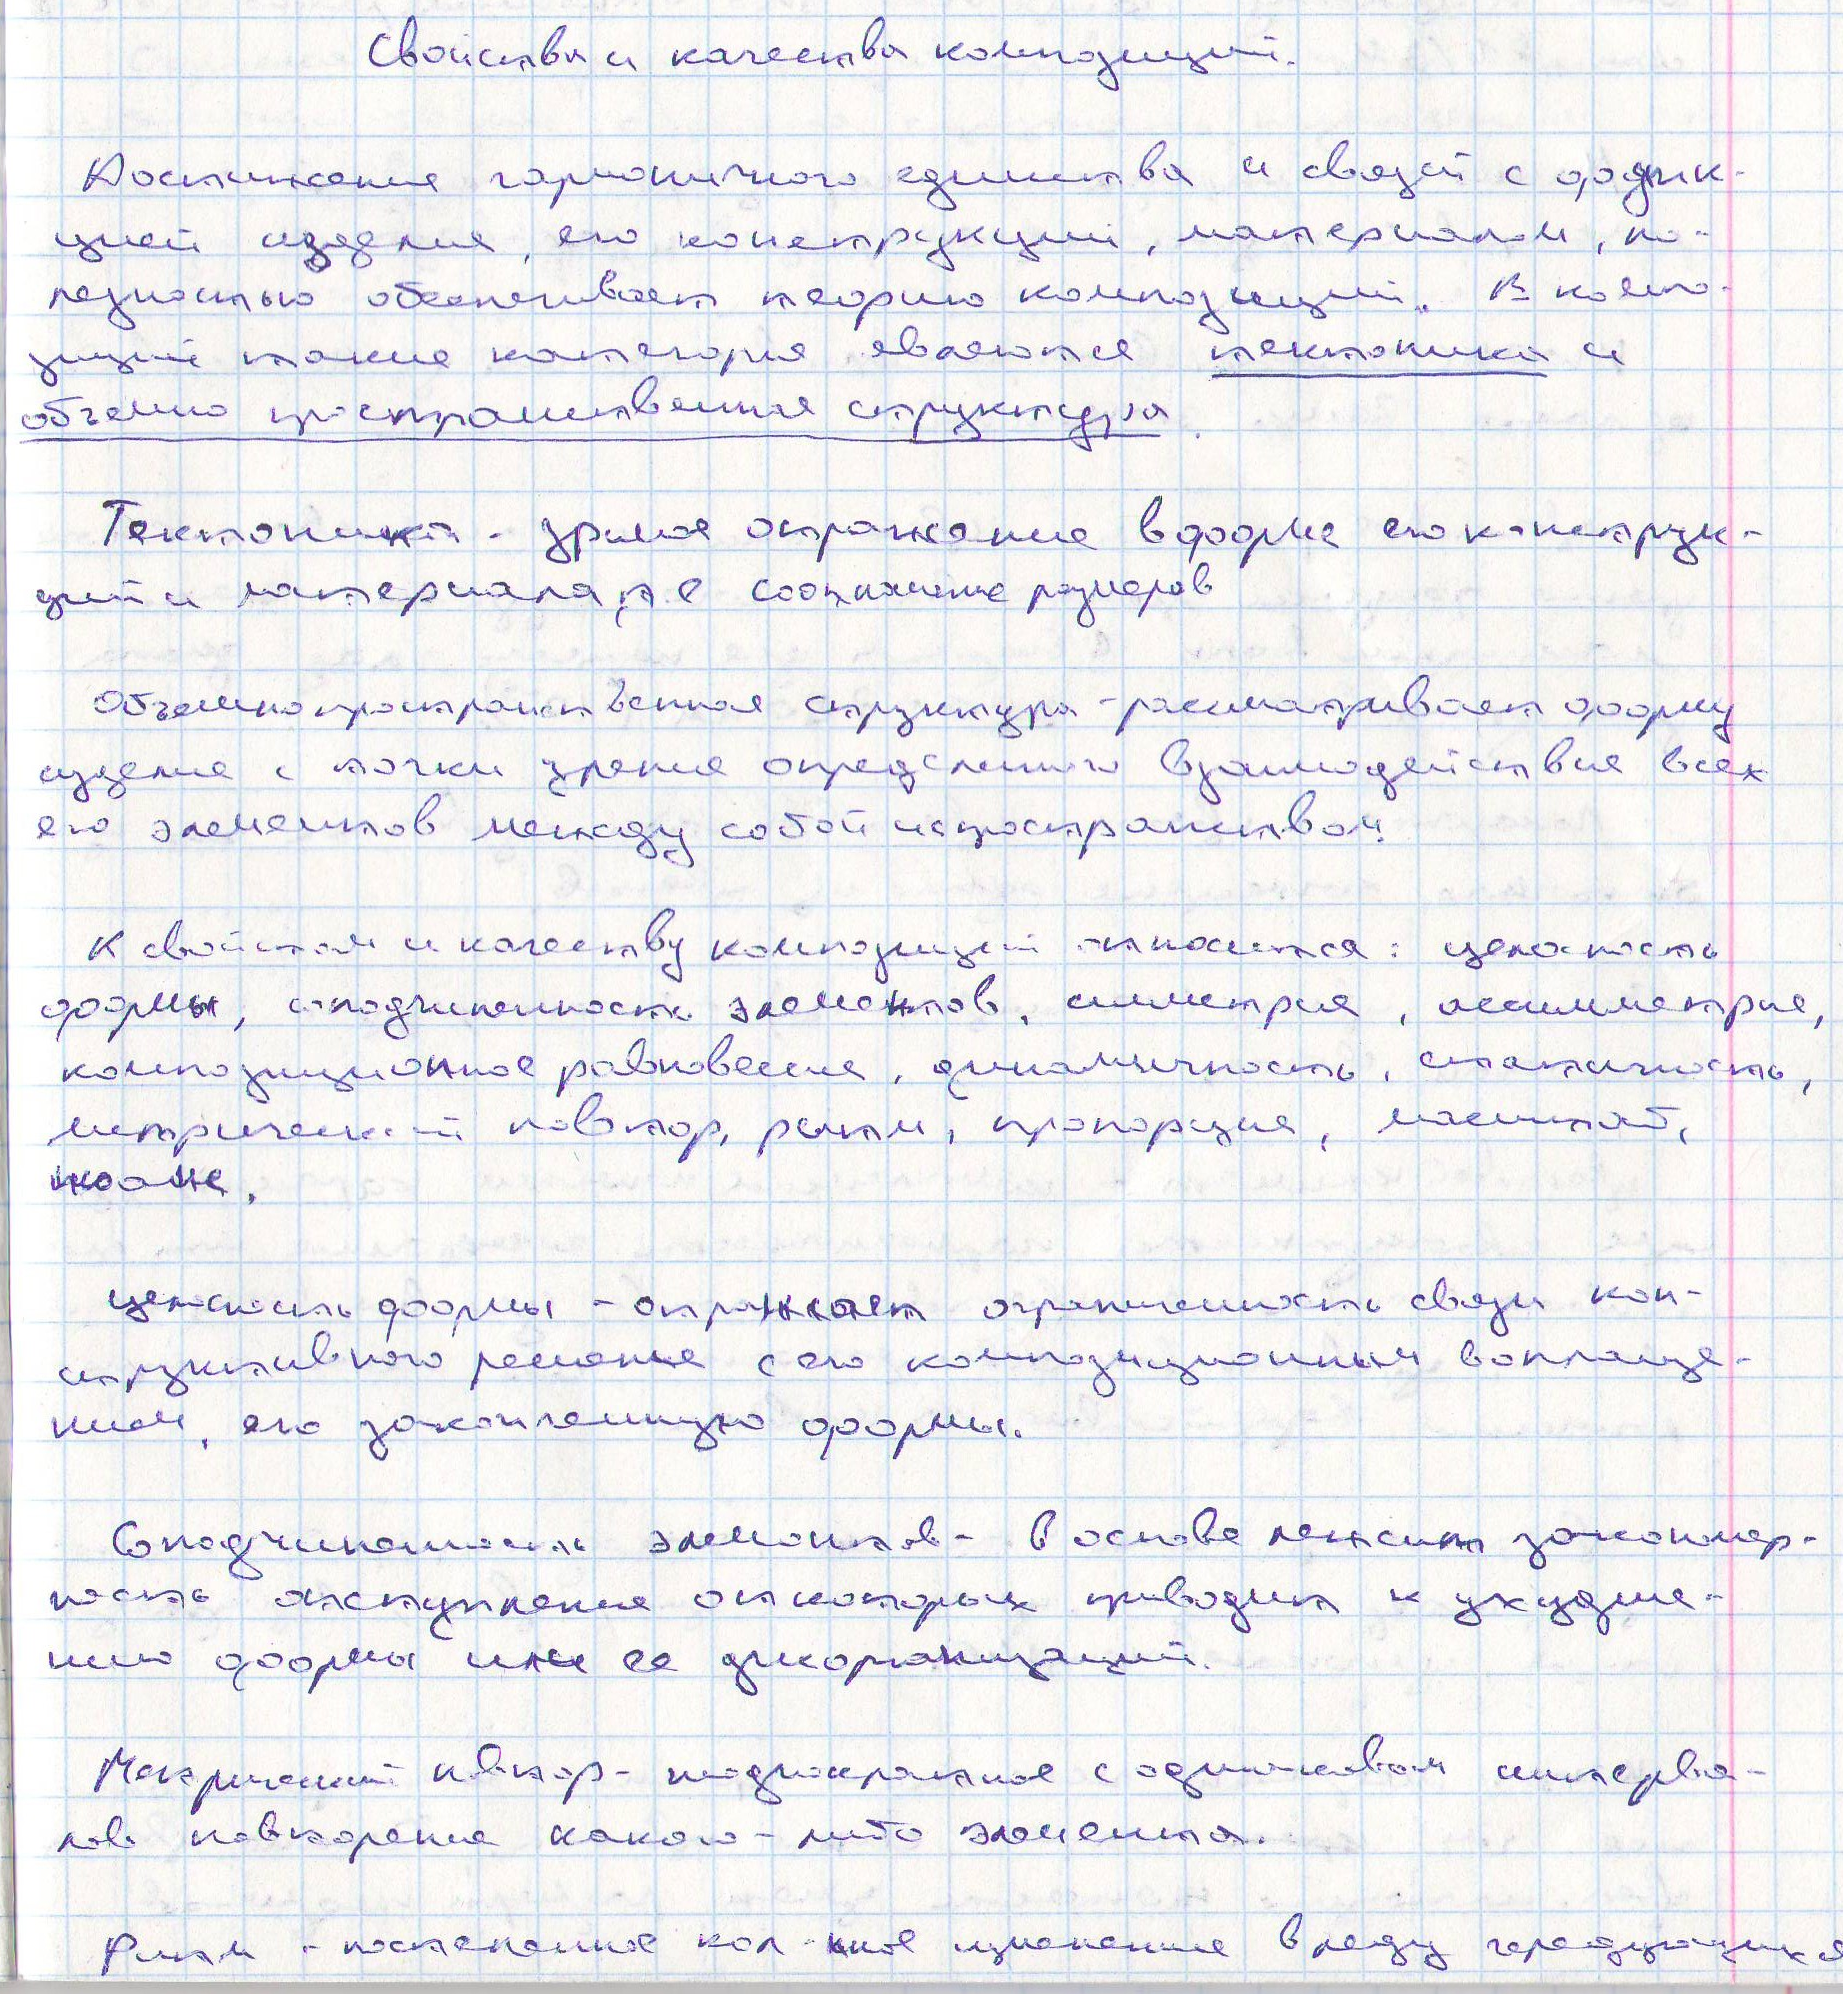 Свойства и качества композиций.
Достижение гармоничного единства и связей с функ-
цией изделия, его конструкций, материалом, по-
лезностью обеспечивает теорию композиций. В компо-
зиций такие категория являются тектоника и
объемно пространственная структура.
Тектоника - зримое отражение в форме его конструк-
ций и материала, т е соотношение размеров
Объемнопространственная структура - рассматривает форму
изделия с точки зрения определенного взаимодействия всех
его элементов между собой и пространством.
К свойствам и качеству композиций относится: целостность
формы, соподчиненность элементов, симметрия, ассимметрия,
композиционное равновесие, динамичность, статичность,
метрический повтор, ритм, пропорция, масштаб,
Целостность формы - отражает ограниченность связи кон-
структивного решения с его композиционным воплоще-
нием, его законченную формы.
Соподчиненность элементов - в основе лежит закономер-
ность отступления от которых приводит к ухудше-
нию формы или ее дизорганизаций.
Метрический повтор - многократное с одинаковом интерва-
лов повторение какого-либо элемента.
Ритм - постепенное кол-ное изменение в ряду чередующихся